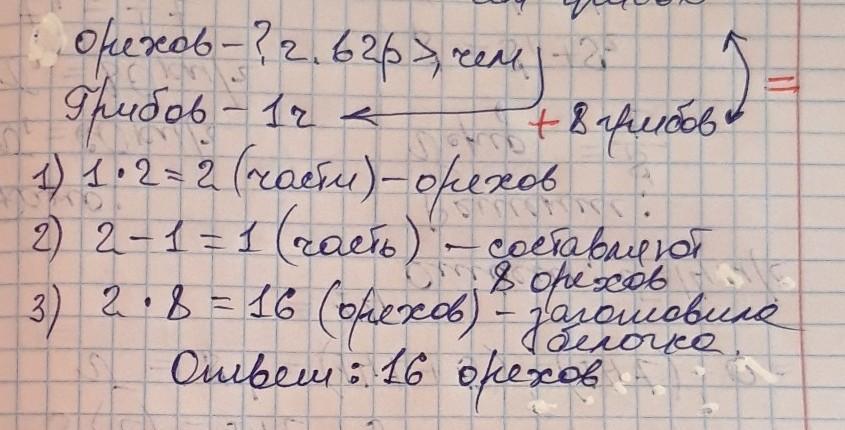 Орехов – ? ч. в 2р >, чем
Грибов – 1ч + 8 грибов =
1) 1 · 2 = 2 (части) – орехов
2) 2 – 1 = 1 (часть) – составляют
8 орехов
3) 2 · 8 = 16 (орехов) – заготовила
белочка.
Ответ: 16 орехов.